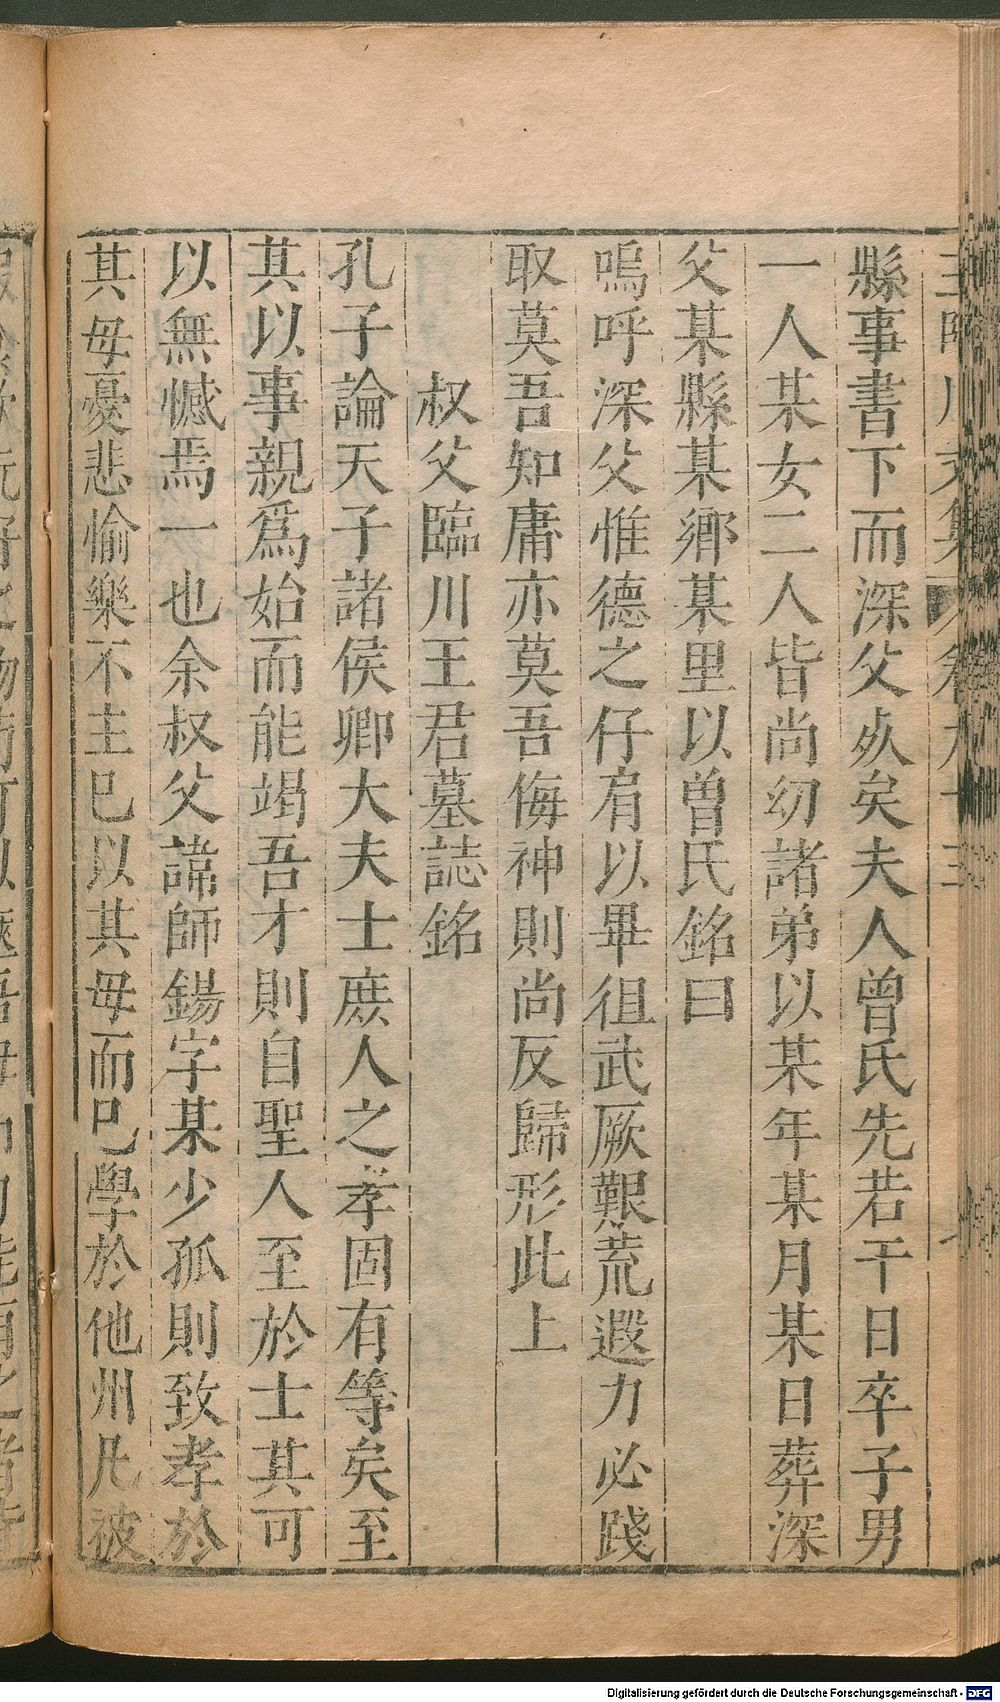 縣事書下而深父死矣夫人曾氏先若干日卒子男
一人某女二人皆尚幼諸弟以某年某月某日葬深
父某縣某鄉某里以曾氏銘曰
嗚呼深父惟德之仔肩以畢徂武厥艱荒遐力必踐
取莫吾知庸亦莫吾侮神則尚反歸形此土
叔父臨川王君墓誌銘
孔子論天子諸侯卿大夫士庶人之孝固有等矣至
其以事親爲始而能竭吾才則自聖人至於士其可
以無憾焉一也余叔父諱師錫字某少孤則致孝於
其母憂悲愉樂不主己以其母而已學於他州凡被
Digitalisierung gefördert durch die Deutsche Forschungsgemeinschaft - DFG